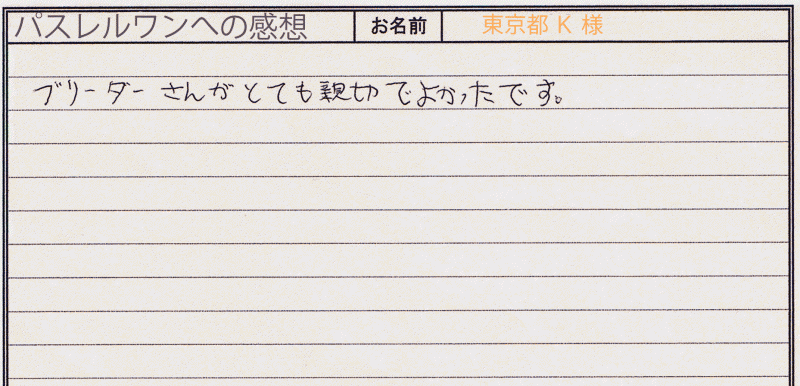 パスレルワンへの感想 お名前 東京都 K 様
ブリーダーさんがとても親切でよかったです。